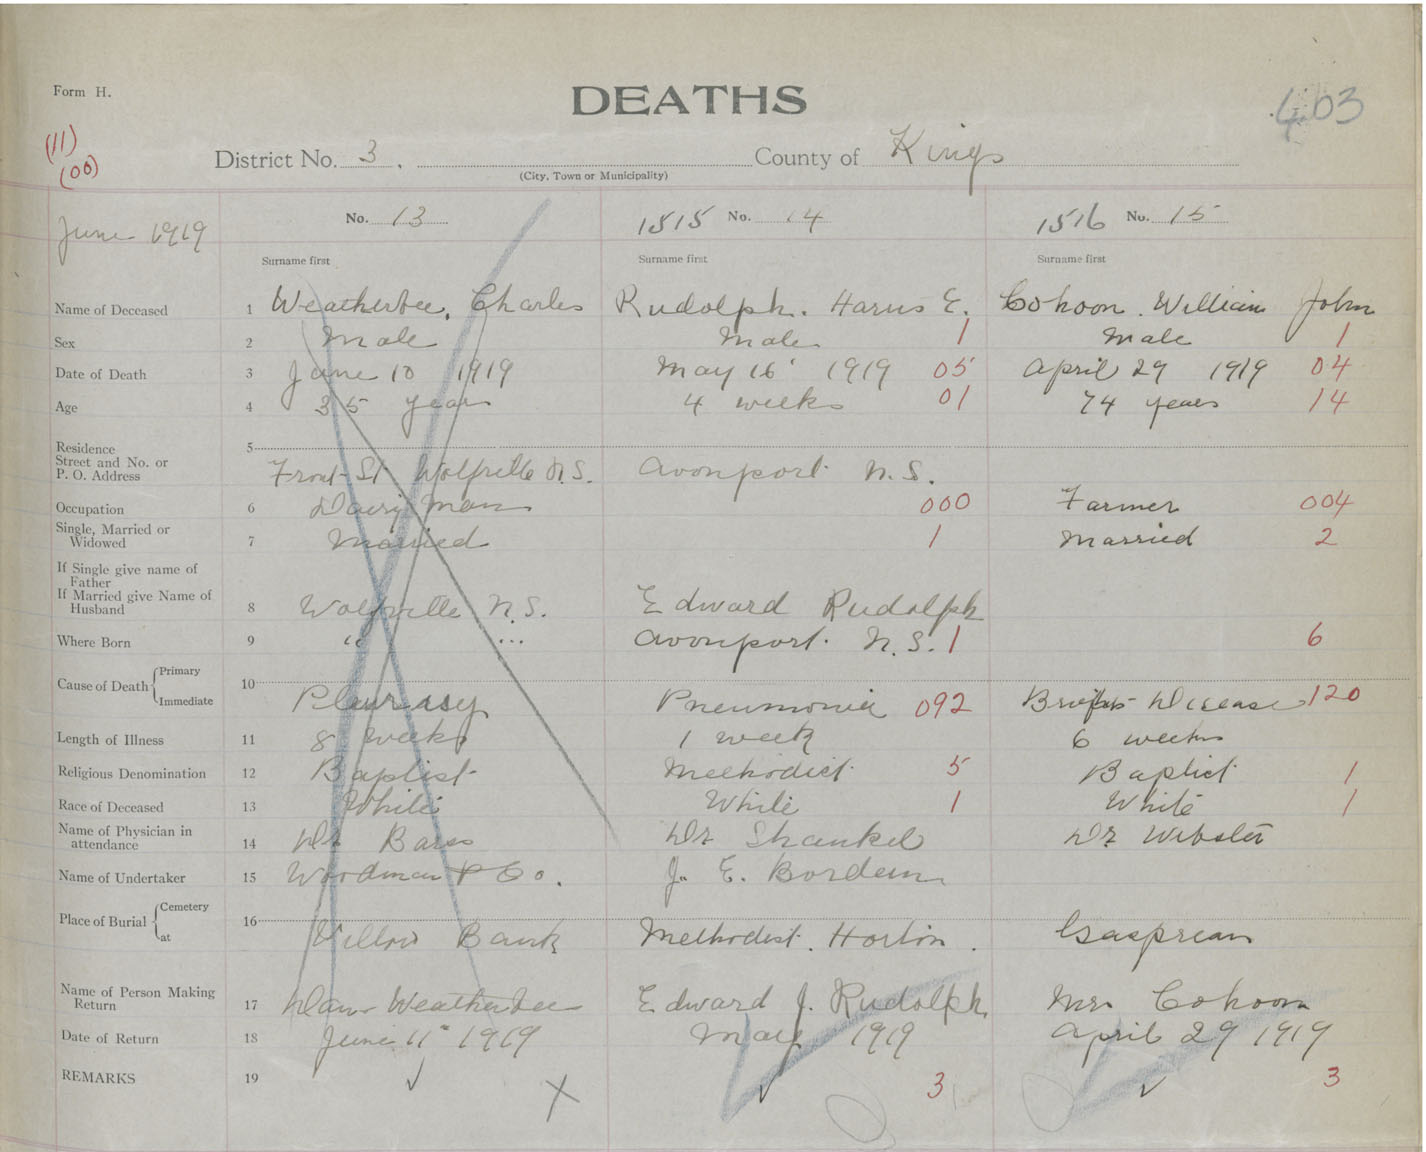 Form H.
DEATHS
403
(11)
(00)
District No. 3. County of Kings
(City, Town or Municipality)
June 1919
No. 13 1515 No. 14 1516 No. 15
Surname first Surname first Surname first
Name of Deceased 1 Weatherbee, Charles Rudolph. Harris E. Cohoon. William John
Sex 2 Male Male 1 Male 1
Date of Death 3 June 10 1919 May 16 1919 05 April 29 1919 04
Age 4 35 years 4 weeks 01 74 years 14
Residence 5
Street and No. or
P. O. Address Front St Wolfville N.S. Avonport N.S.
Occupation 6 Dairy Man 000 Farmer 004
Single, Married or
Widowed 7 Married 1 Married 2
If Single give name of
Father
If Married give Name of
Husband 8 Wolfville N.S. Edward Rudolph
Where Born 9 " ... Avonport. N.S. 1 6
Cause of Death { Primary 10
Immediate Pleurasy Pneumonia 092 Brights Disease 120
Length of Illness 11 8 weeks 1 week 6 weeks
Religious Denomination 12 Baptist Methodist 5 Baptist 1
Race of Deceased 13 White White 1 White 1
Name of Physician in
attendance 14 Dr Barss Dr Shankel Dr Webster
Name of Undertaker 15 Woodman & Co. J. E. Borden
Place of Burial { Cemetery 16
at Willow Bank Methodist. Horton. Gaspreau
Name of Person Making
Return 17 Weatherbee Edward J. Rudolph Mrs Cohoon
Date of Return 18 June 11 1919 May 1919 April 29 1919
REMARKS 19 ✓ X ✓ 3 ✓ 3